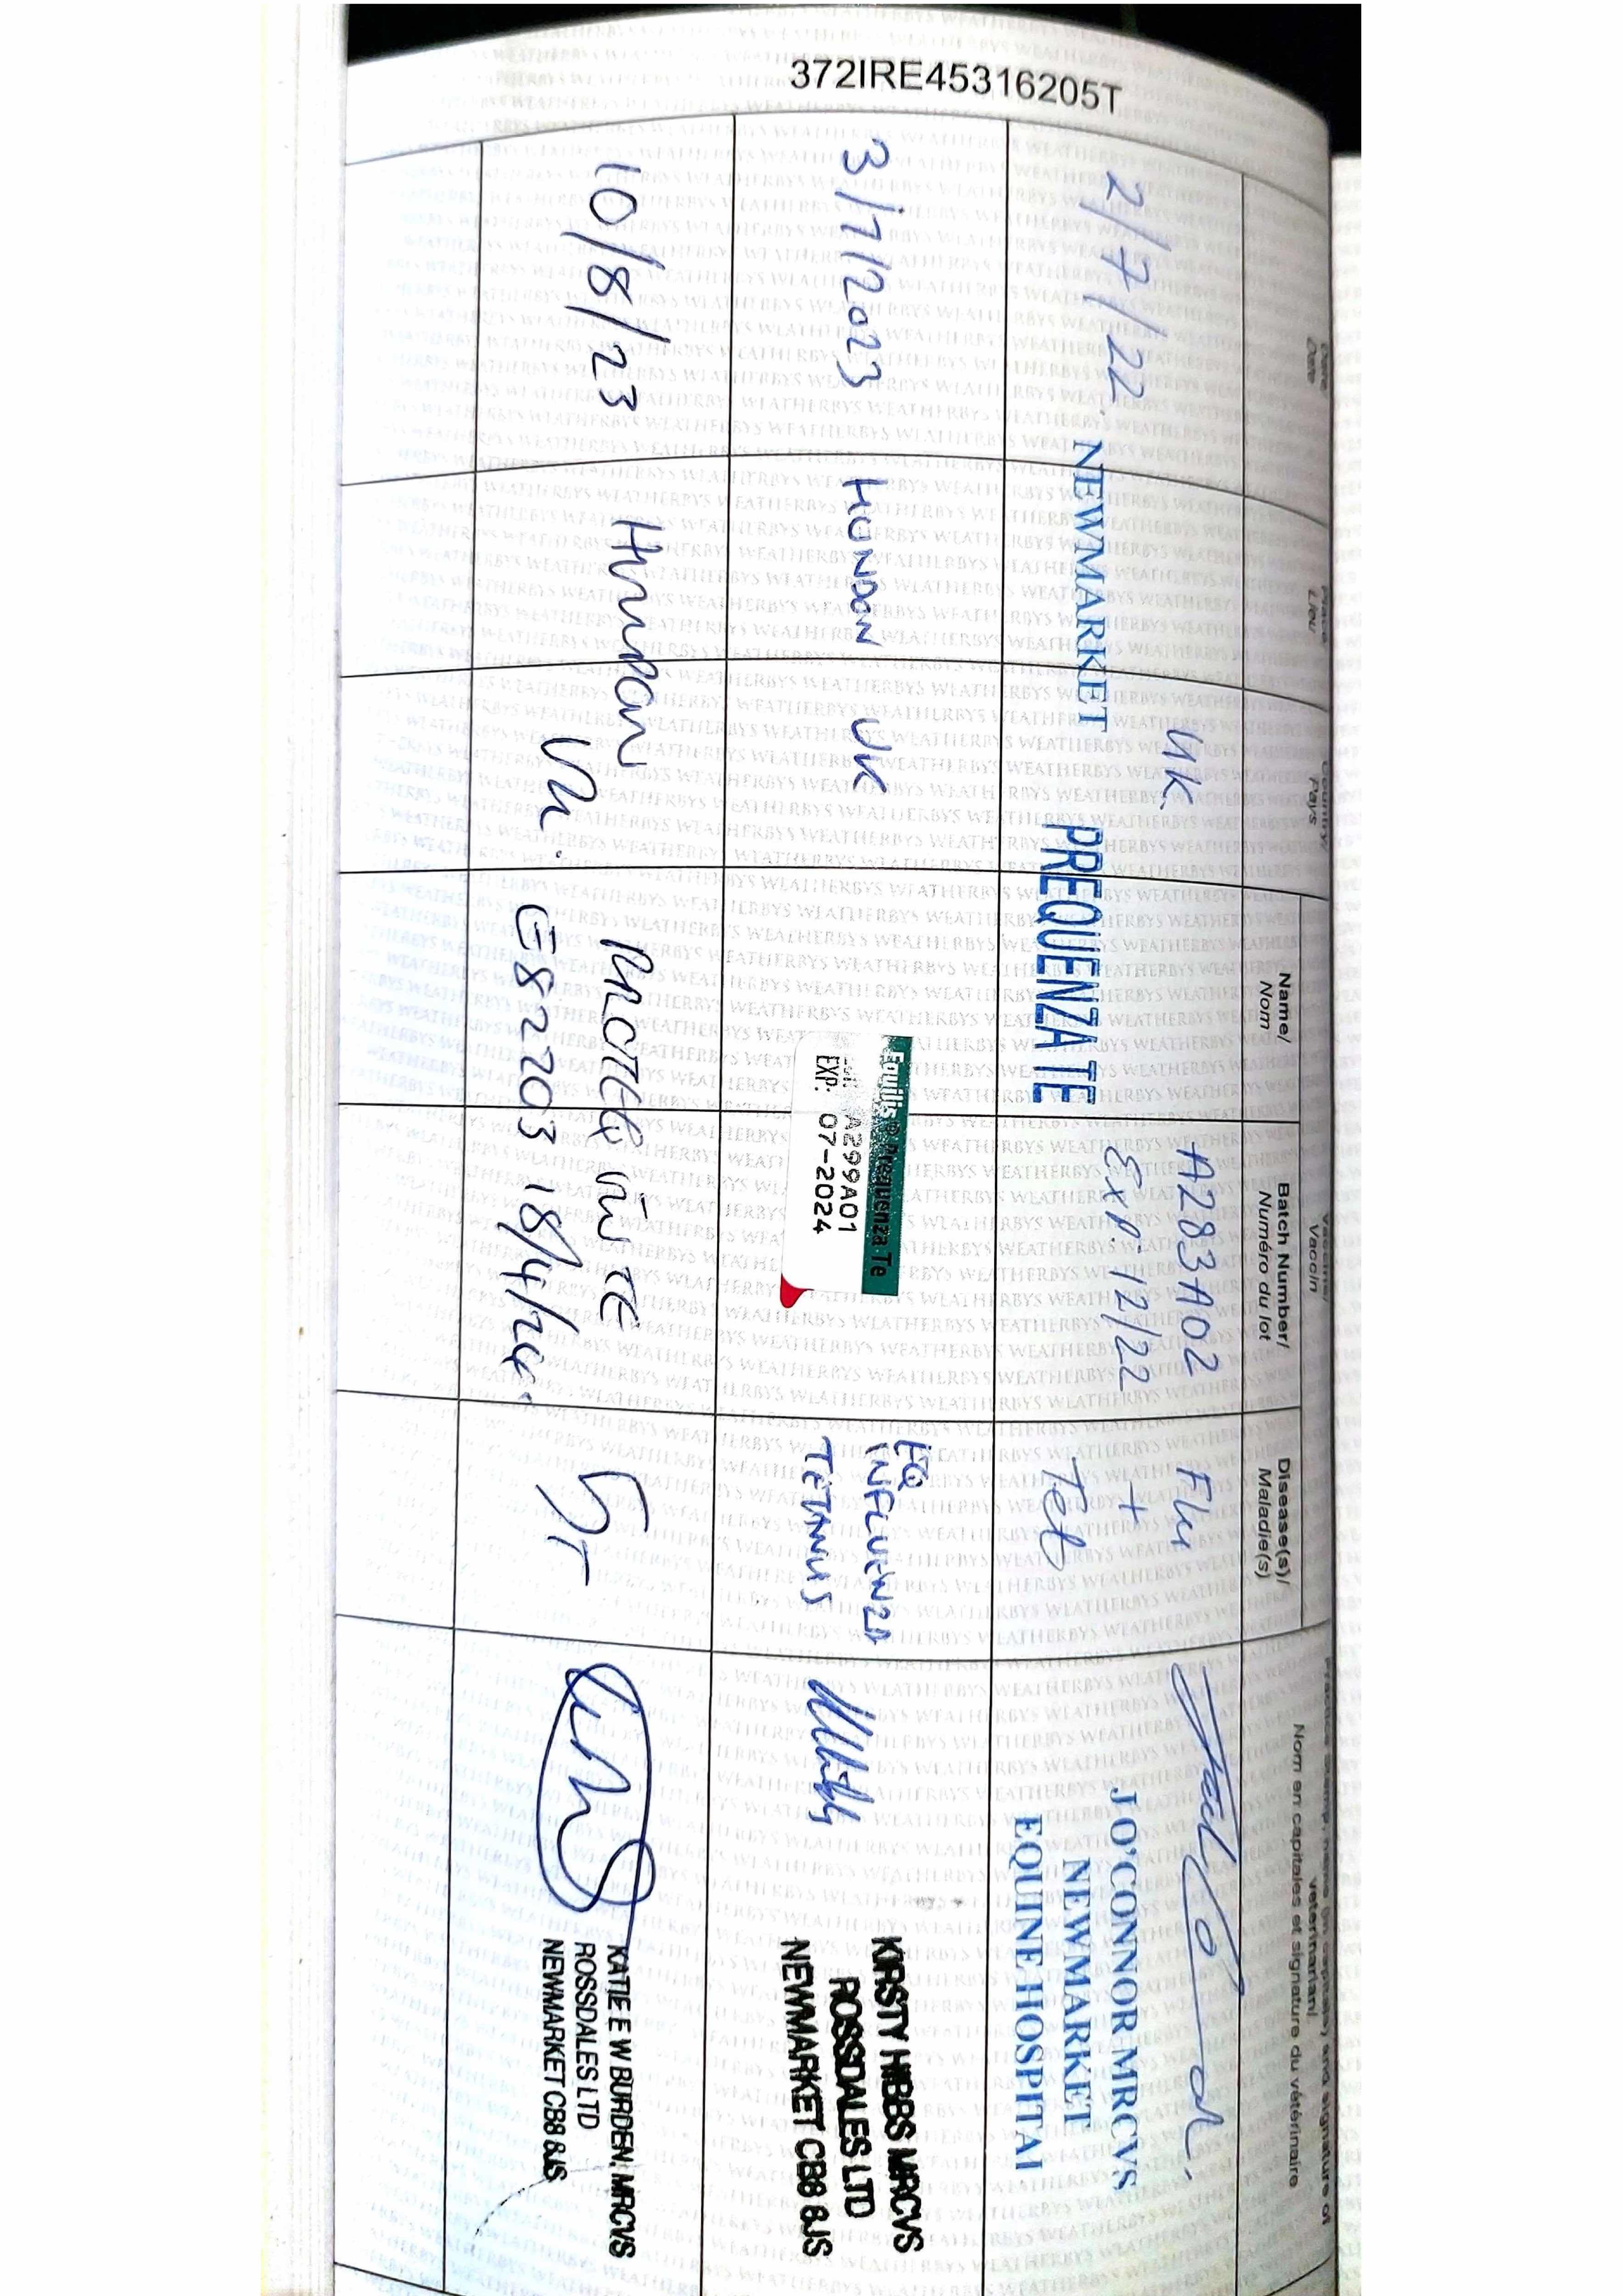 372IRE45316205T
Date
Date
Place
Lieu
Country
Pays
Vaccine/
Vaccin
Name/
Nom
Batch Number/
Numéro du lot
Disease(s)/
Maladie(s)
veterinarian/
Nom en capitales et signature du vétérinaire
2/7/22
NEWMARKET
UK
PREQUENZA TE
A283A02
Exp: 12/22
Flu
+
Tet
J O'CONNOR MRCVS
NEWMARKET
EQUINE HOSPITAL
3/7/2023
HUNDON
UK
Equilis ® Prequenza Te
A299A01
EXP: 07-2024
EQ
INFLUENZA
TETANUS
KIRSTY HIBBS MRCVS
ROSSDALES LTD
NEWMARKET CB8 8JS
10/8/23
HUNDON
UK.
E82203 18/4/24
KATIE E W BURDEN, MRCVS
ROSSDALES LTD
NEWMARKET CB8 8JS